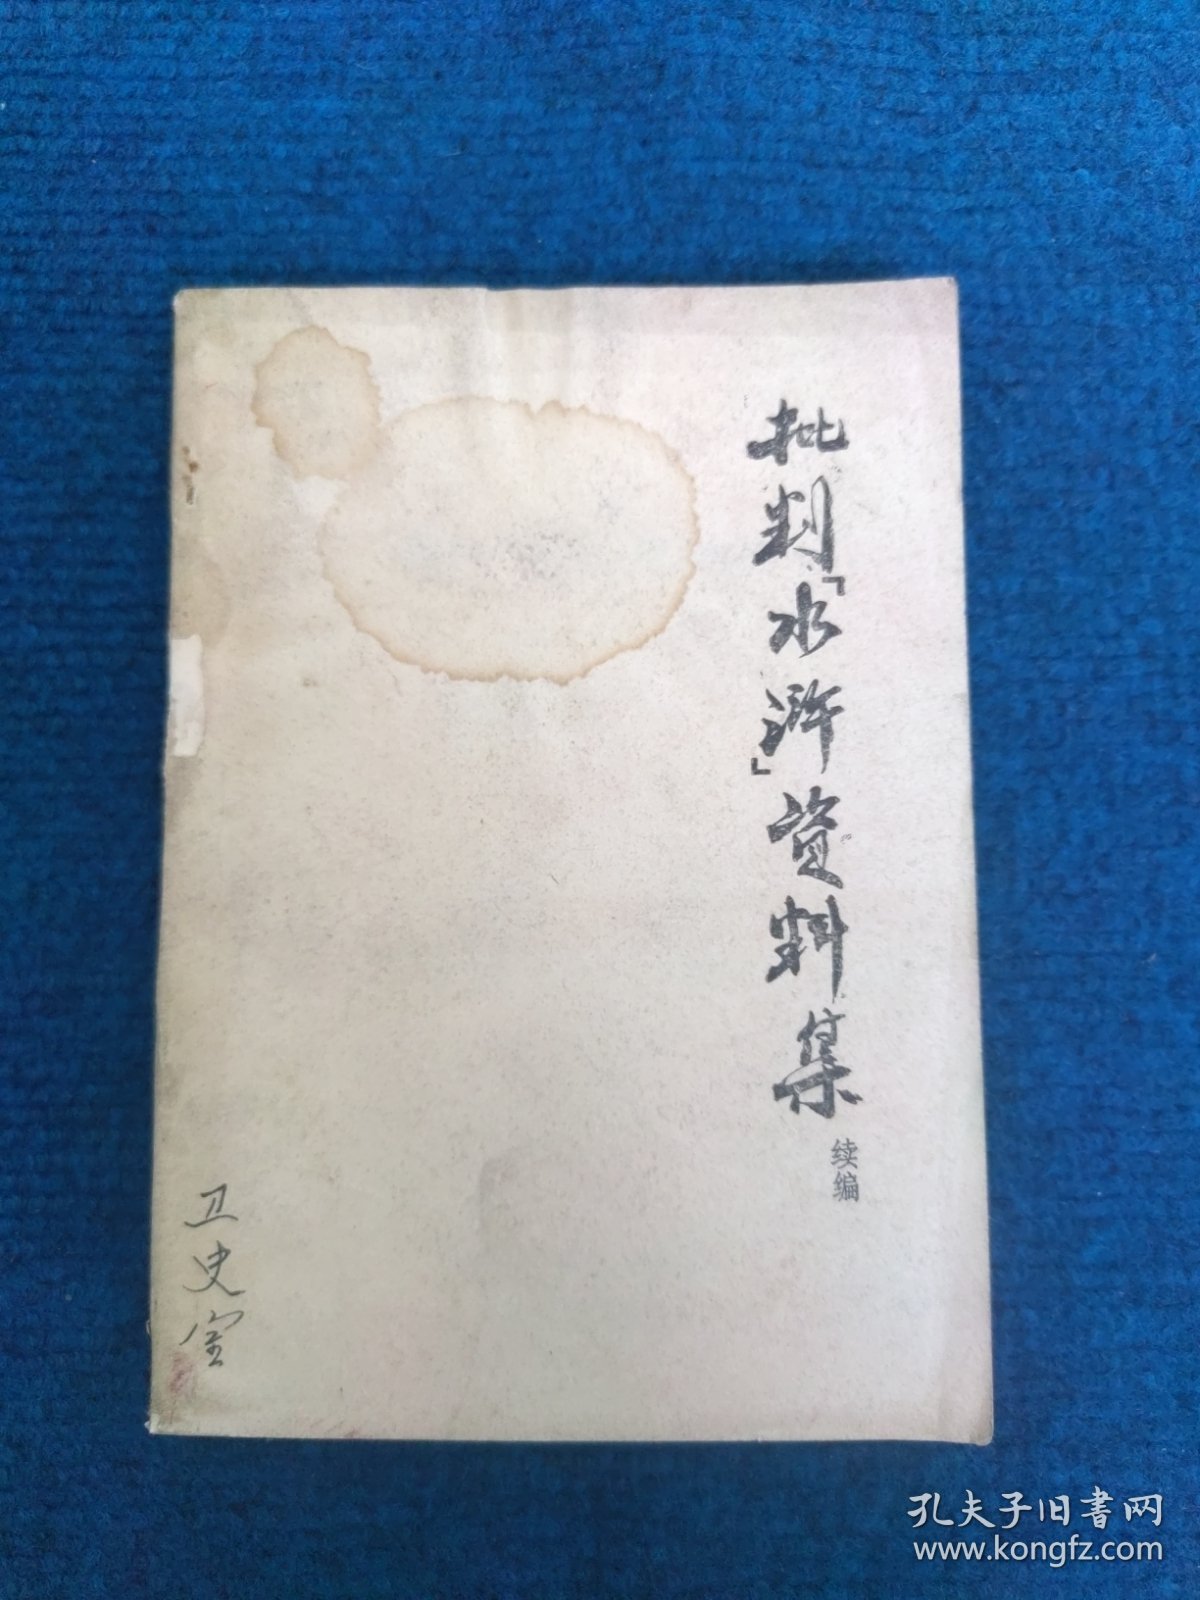 批判「水浒」资料集
续编
卫史室
孔夫子旧书网
www.kongfz.com